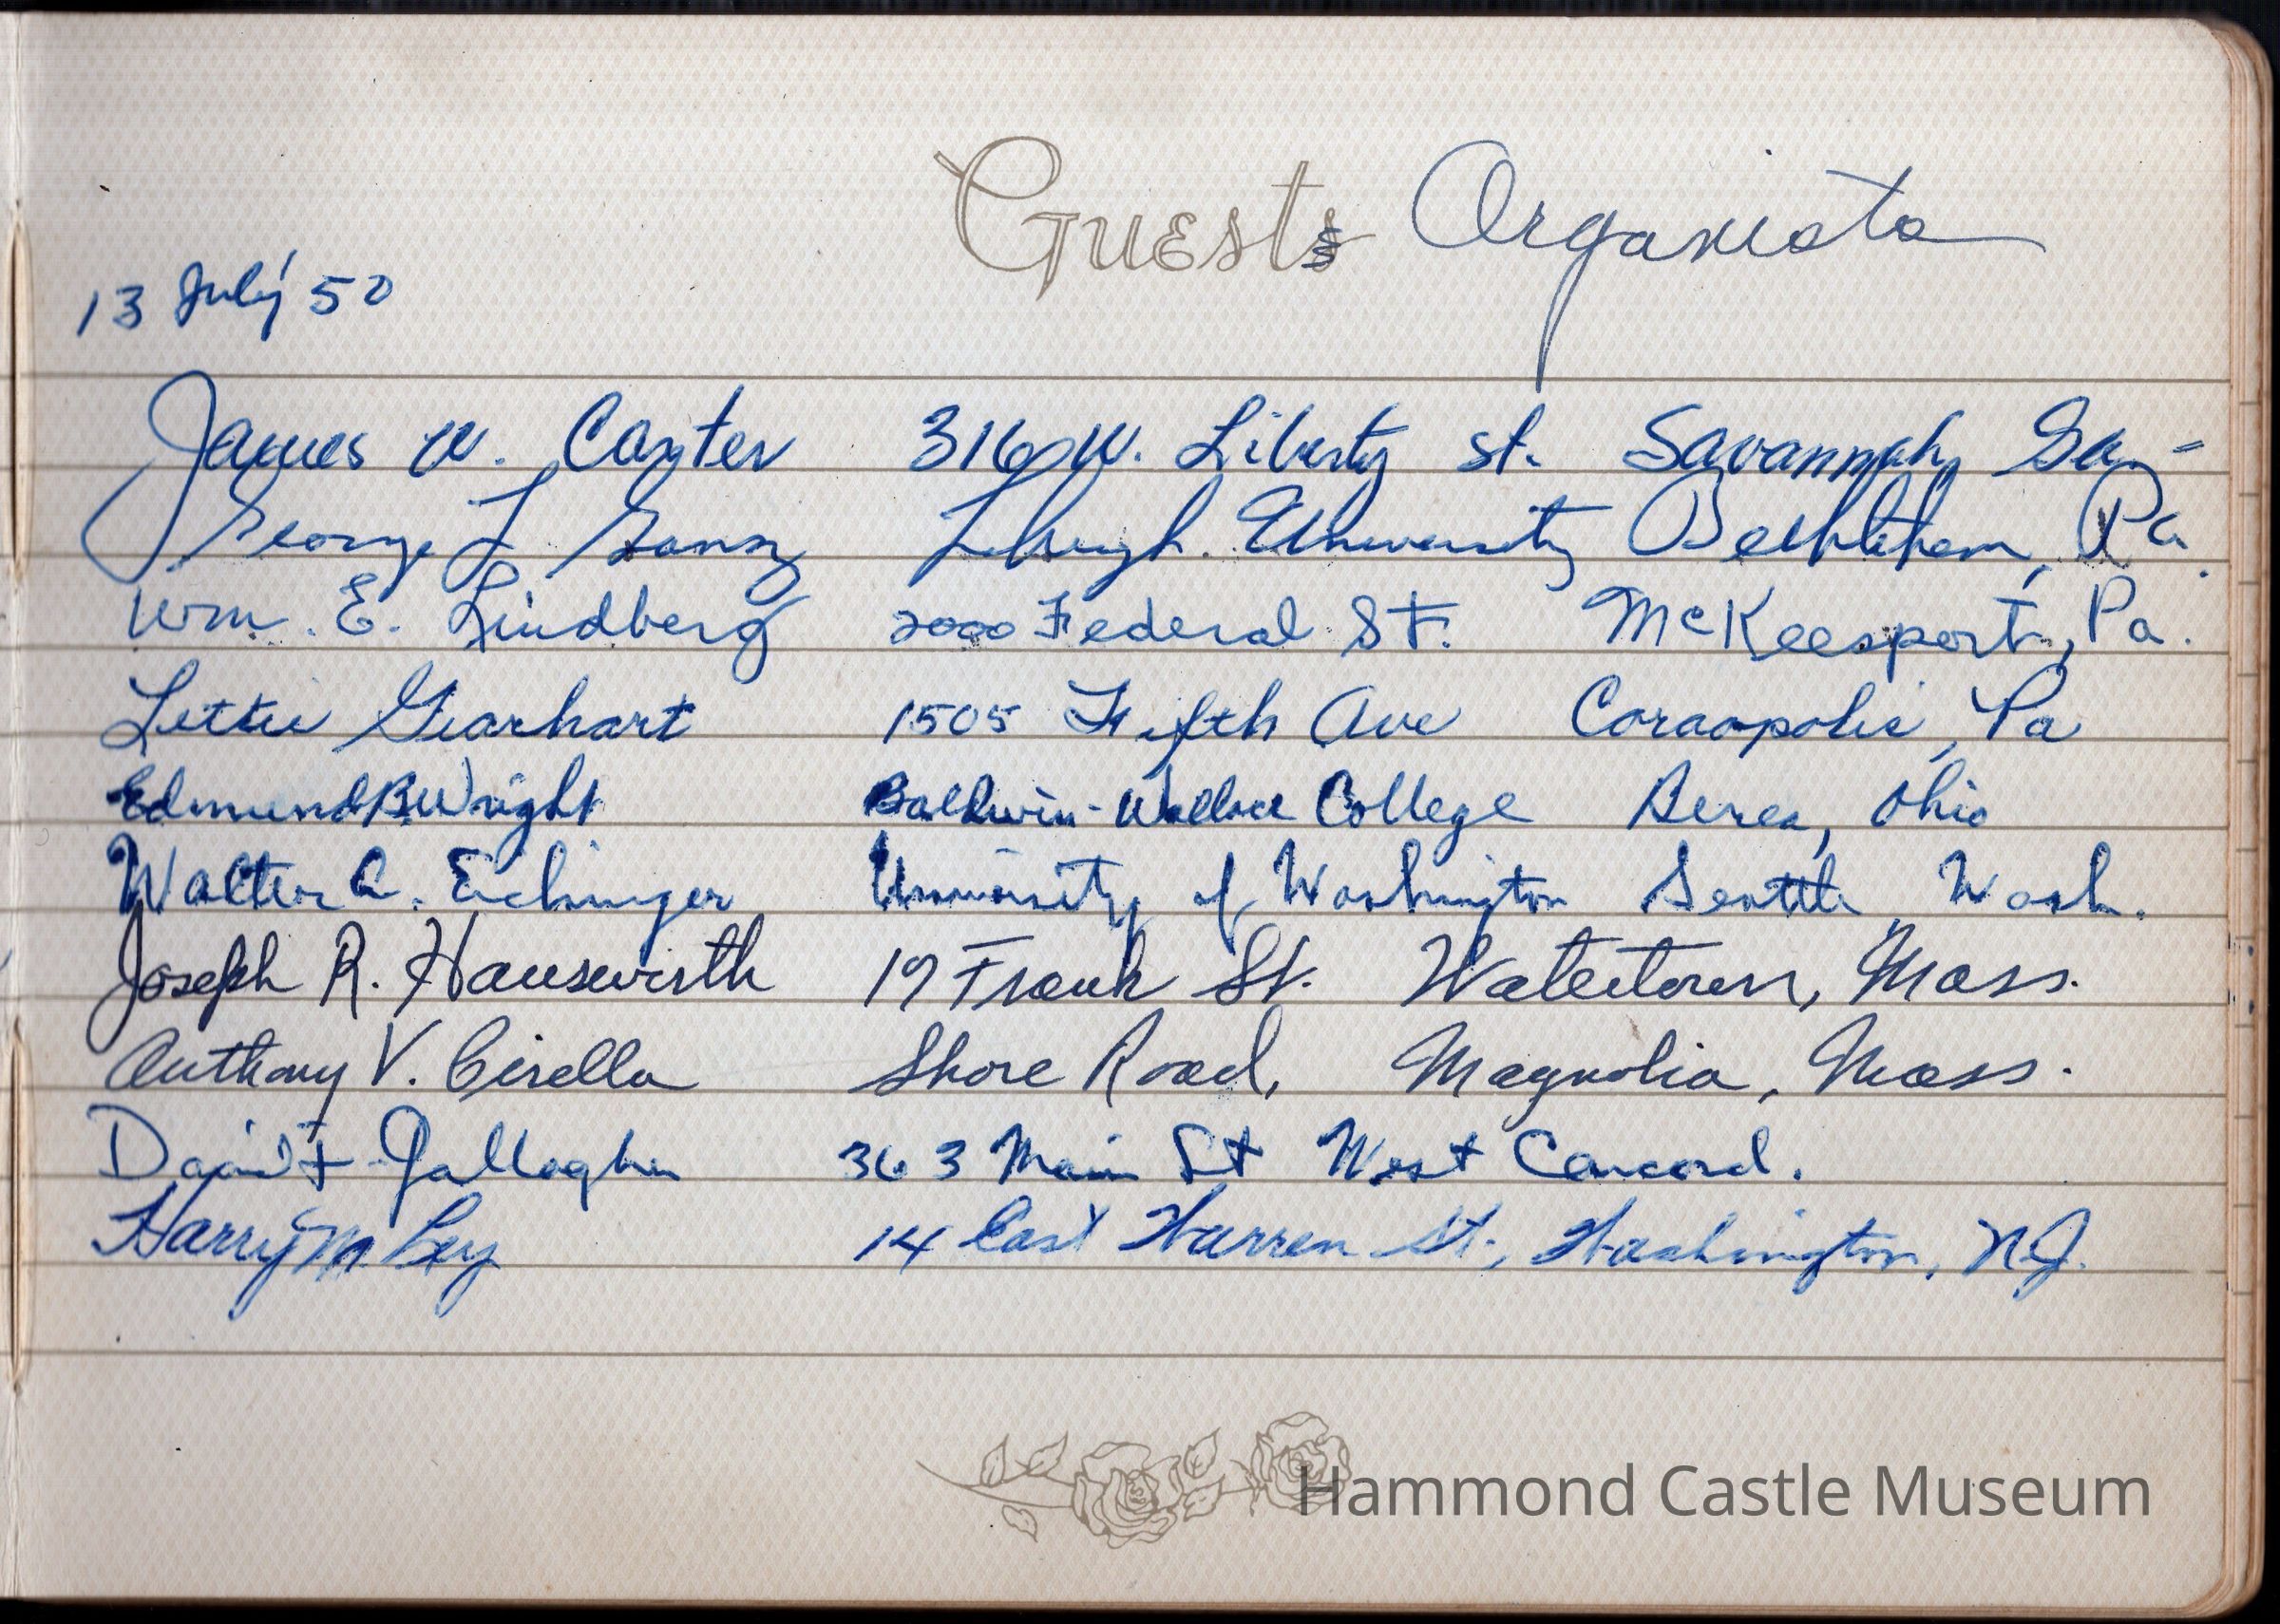 Guests Organists
13 July 50
James W. Carter 316 W. Liberty St. Savannah, Ga-
George L Gansz Lehigh University Bethlehem, Pa.
Wm. E. Lindberg 2000 Federal St. McKeesport, Pa.
Lettie Gearhart 1505 Fifth Ave Coraopolis, Pa
Edmund B. Wright Baldwin-Wallace College Berea, Ohio
Walter A. Eichinger University of Washington Seattle, Wash.
Joseph R. Hauswirth 19 Frank St. Watertown, Mass.
Anthony V. Cirella Shore Road, Magnolia, Mass.
David F Gallagher 363 Main St West Concord.
Harry M 14 East Warren St., Washington, N.J.
Hammond Castle Museum